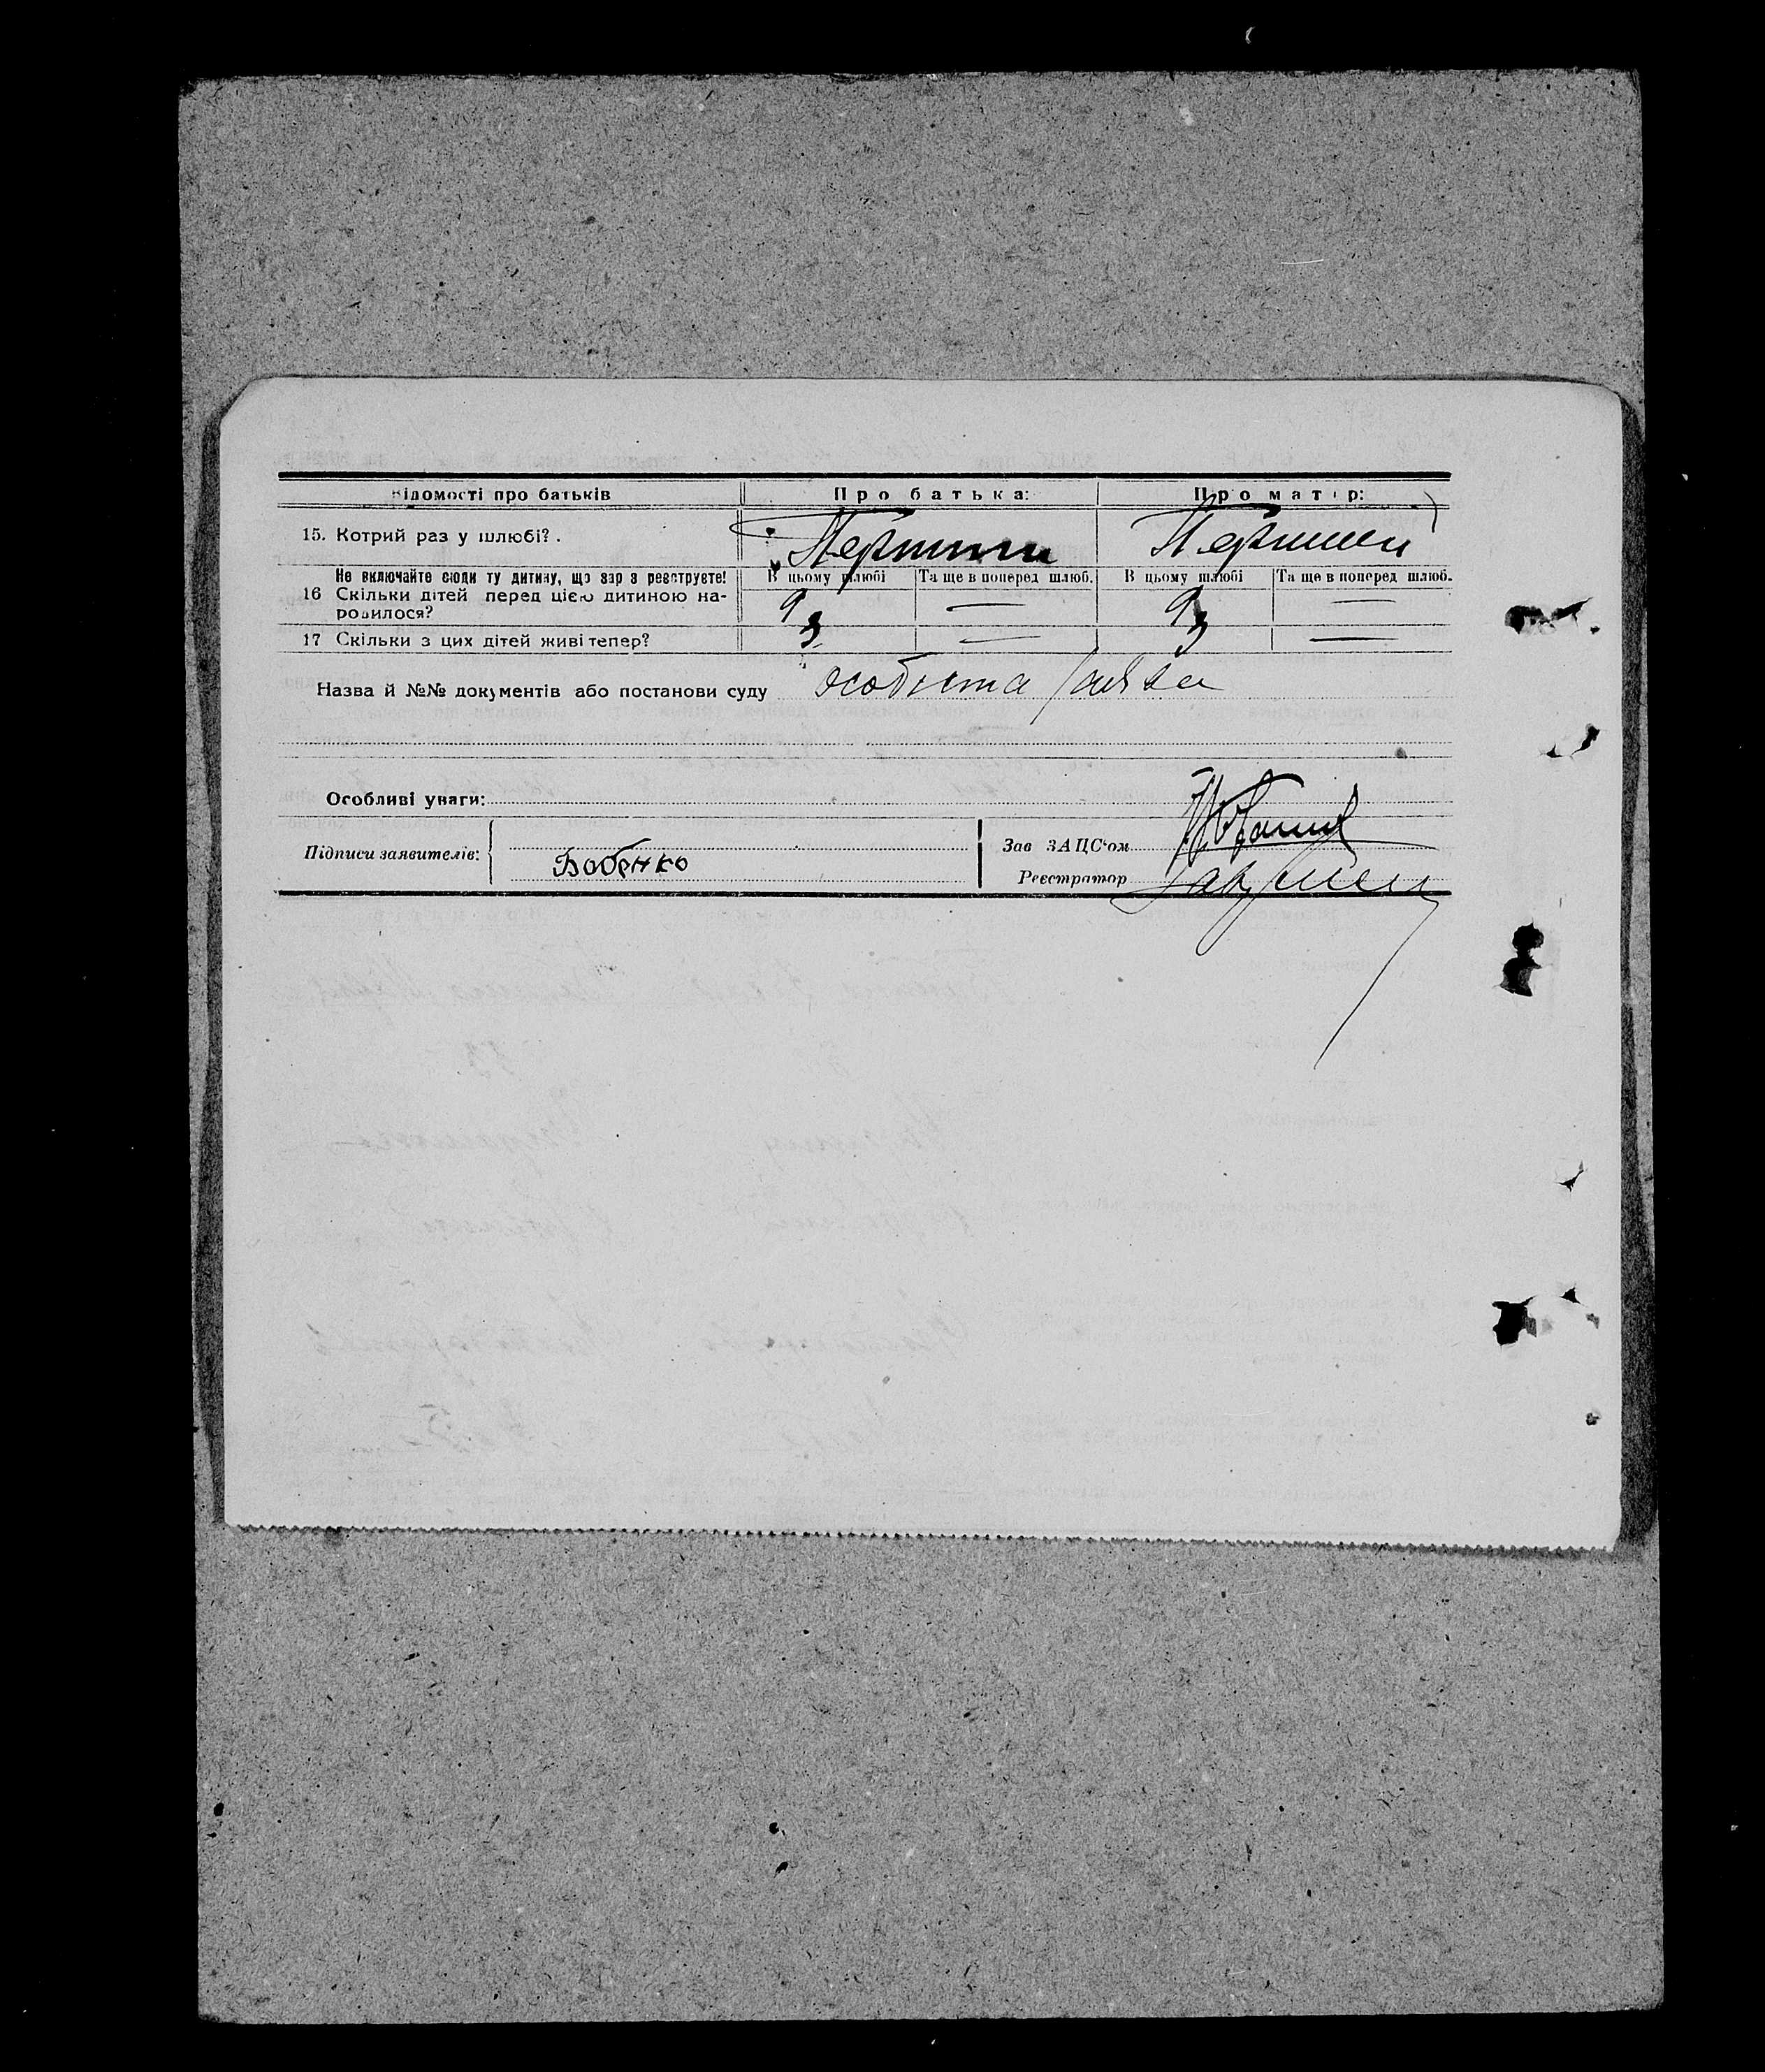 Відомості про батьків Про батька: Про матір:
15. Котрий раз у шлюбі?. Перший Перший
Не включайте сюди ту дитину, що зар з реєструєте! В цьому шлюбі Та ще в поперед шлюб. В цьому шлюбі Та ще в поперед шлюб.
16 Скільки дітей перед цією дитиною на- 9 — 9 —
родилося?
17 Скільки з цих дітей живі тепер? 3 — 3 —
Назва й №№ документів або постанови суду особиста заява
Особливі уваги:
Підписи заявителів: Бабенко
Зав ЗАЦС'ом
Реєстратор